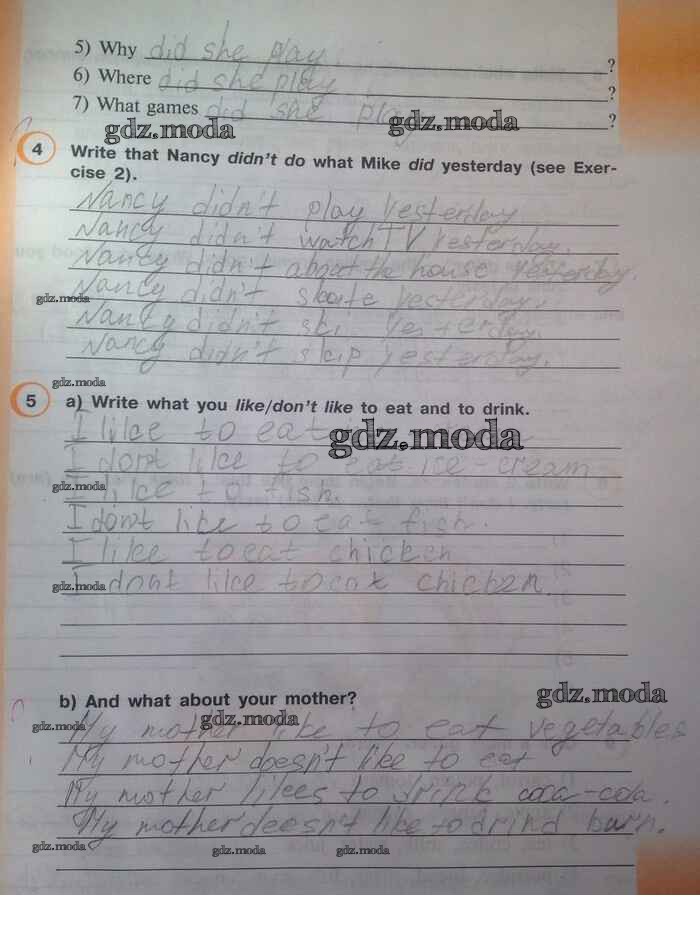 5) Why did she play ?
6) Where did she play ?
7) What games did she play ?
gdz.moda gdz.moda
4 Write that Nancy didn't do what Mike did yesterday (see Exer-
cise 2).
Nancy didn't play yesterday
Nancy didn't watch TV yesterday.
Nancy didn't about the house yesterday.
gdz.moda
Nancy didn't skate yesterday.
Nancy didn't ski yesterday.
Nancy didn't skip yesterday.
gdz.moda
5 a) Write what you like/don't like to eat and to drink.
I like to eat
gdz.moda
I dont like to eat ice-cream
gdz.moda
I like to fish.
I dont like to eat fish.
I like to eat chicken
gdz.moda
I dont like to eat chicken.
gdz.moda
b) And what about your mother?
gdz.moda gdz.moda
My mother like to eat vegetables
My mother doesn't like to eat
My mother likees to drink coca-cola.
My mother deesn't like to drind
gdz.moda gdz.moda gdz.moda